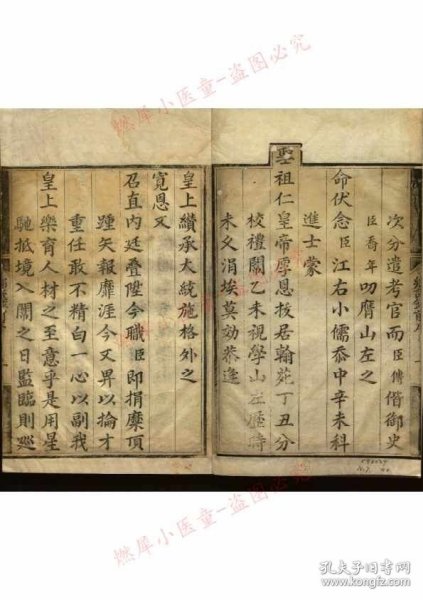 次分遣考官而臣傳偕御史
臣喬年叨膺山左之
命伏念臣江右小儒忝中辛未科
進士蒙
聖祖仁皇帝厚恩拔居翰苑丁丑分
校禮闈乙未視學山左歷時
未久涓埃莫効恭逢
皇上纘承大統施格外之
寬恩又
召直內廷疊陞今職臣即捐糜頂
踵矢報靡涯今又畀以掄才
重任敢不精白一心以副我
皇上樂育人材之至意乎是用星
馳抵境入闈之日監臨則巡
燃犀小医童-盗图必究
燃犀小医童-盗图必究
燃犀小医童-盗图必究
孔夫子旧书网
www.kongfz.com